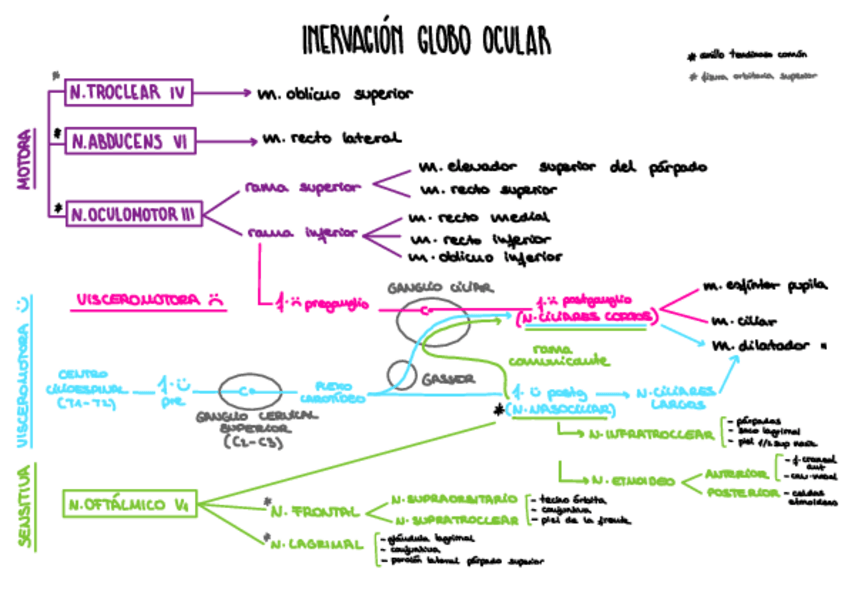 INERVACIÓN GLOBO OCULAR
* anillo tendinoso común
* fisura orbitaria superior
MOTORA
* N. TROCLEAR IV
m. oblicuo superior
* N. ABDUCENS VI
m. recto lateral
* N. OCULOMOTOR III
rama superior
m. elevador superior del párpado
m. recto superior
rama inferior
m. recto medial
m. recto inferior
m. oblicuo inferior
VISCEROMOTORA
f. preganglio
GANGLIO CILIAR
f. postganglio
(N. CILIARES CORTOS)
m. esfínter pupila
m. ciliar
m. dilatador "
rama
comunicante
VISCEROMOTORA
CENTRO
CILIOESPINAL
(T1-T2)
f.
pre
GANGLIO CERVICAL
SUPERIOR
(C2-C3)
PLEXO
CAROTÍDEO
GASSER
f. postg
* (N. NASOCILIAR)
N. CILIARES
LARGOS
N. INFRATROCLEAR
- párpados
- saco lagrimal
- piel
N. ETMOIDEO
ANTERIOR
- f. craneal
ant
- cav. nasal
POSTERIOR
- celdas
etmoideas
SENSITIVA
N. OFTÁLMICO V1
* N. FRONTAL
N. SUPRAORBITARIO
N. SUPRATROCLEAR
- techo órbita
- conjuntiva
- piel de la frente
* N. LAGRIMAL
- glándula lagrimal
- conjuntiva
- porción lateral párpado superior